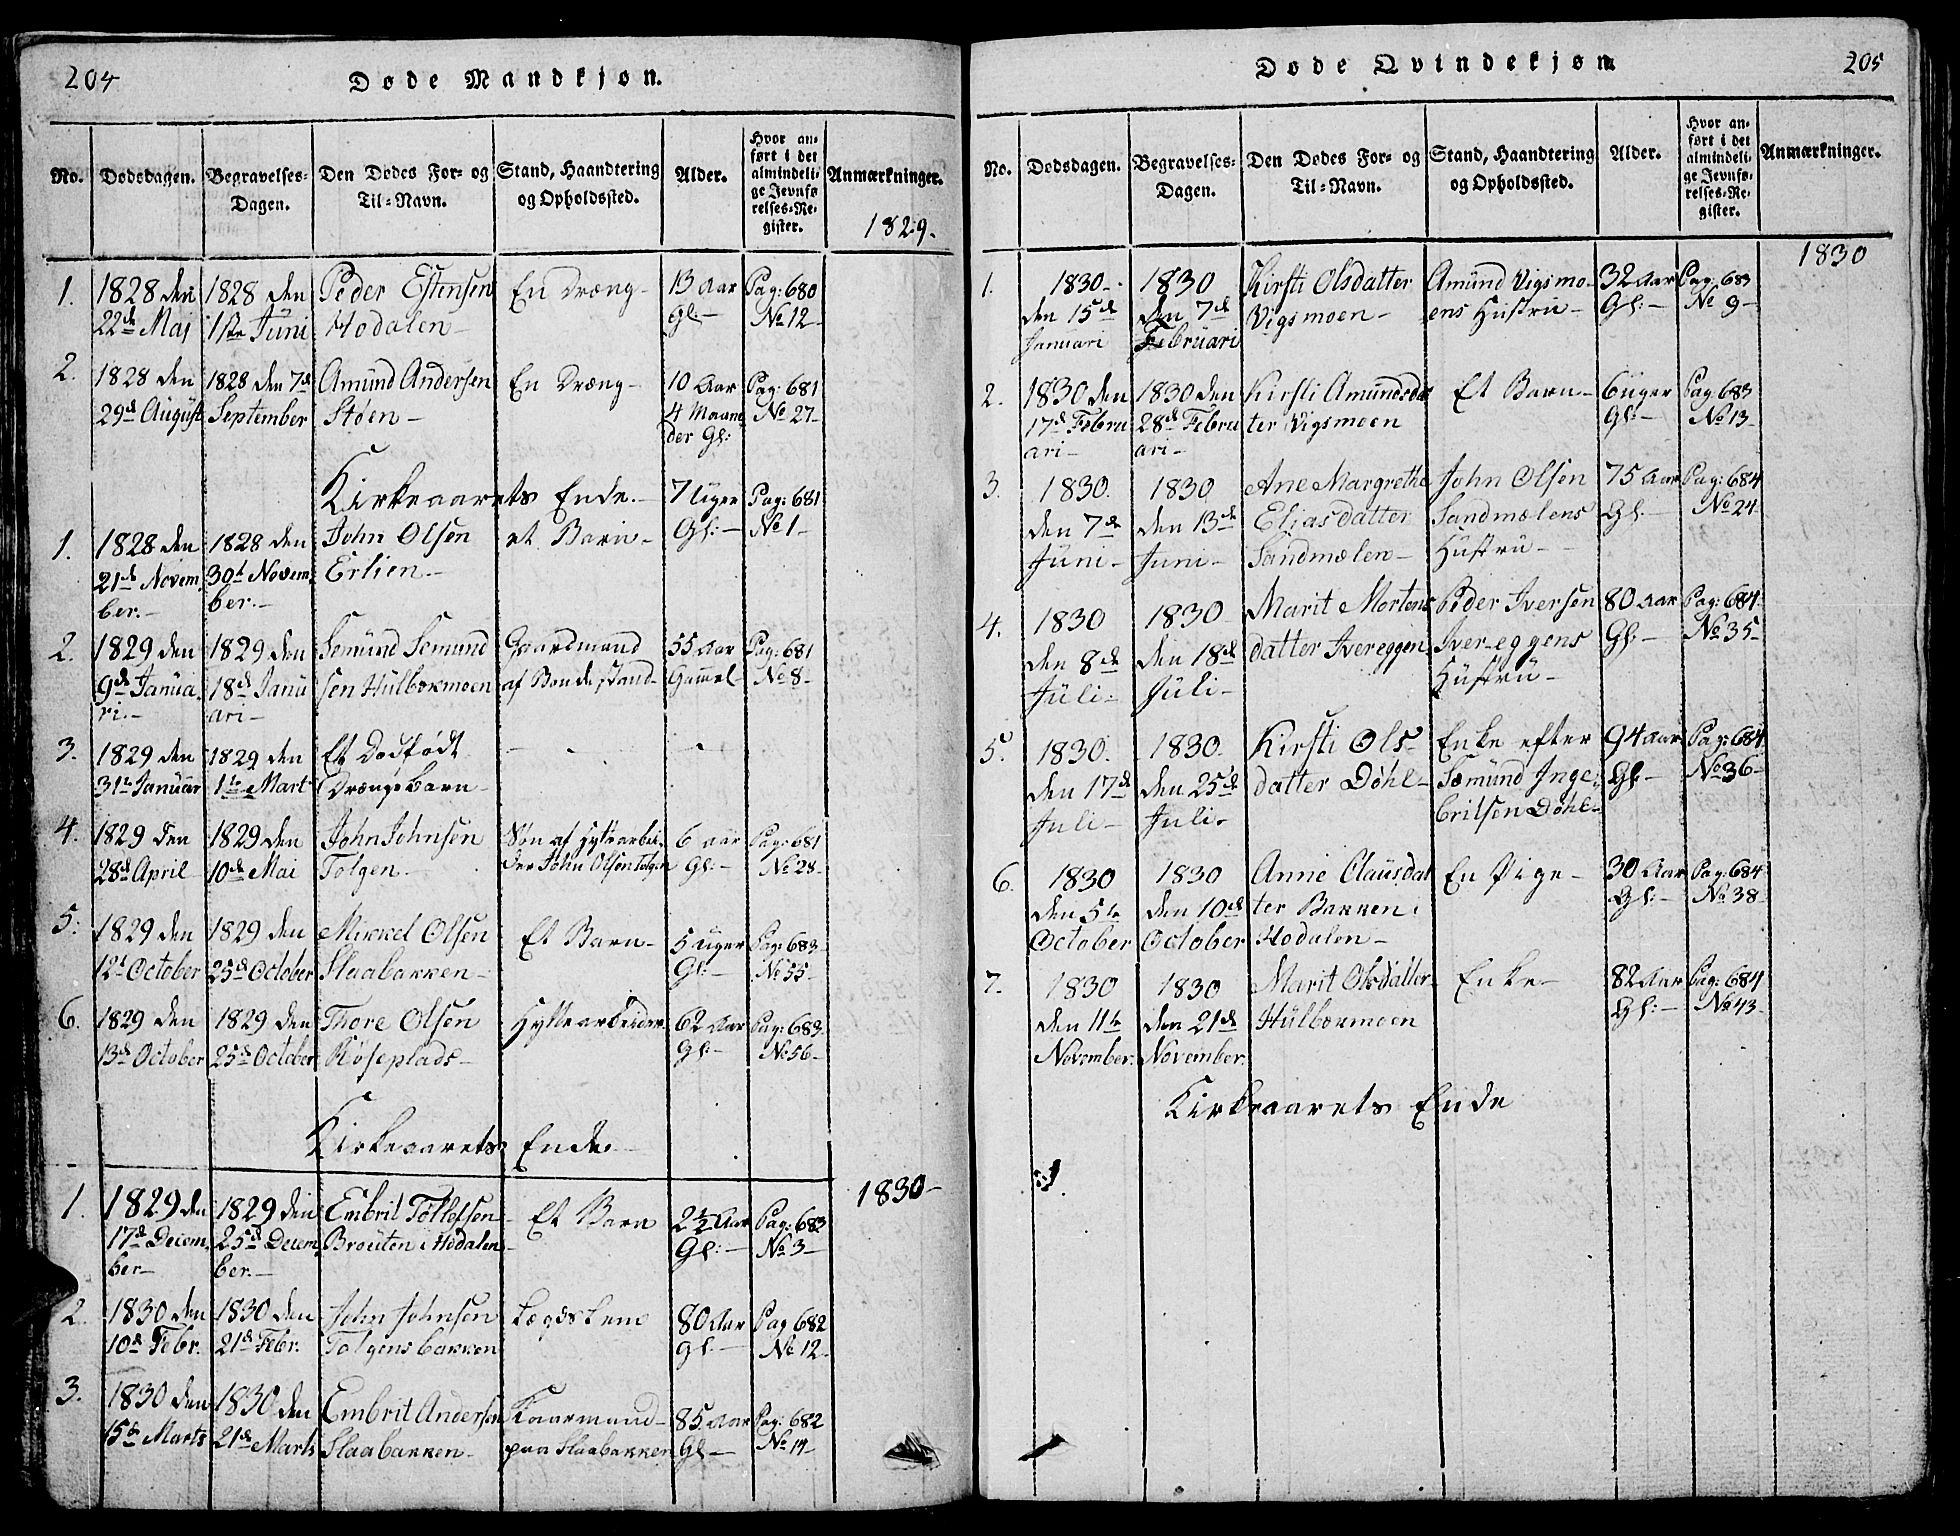 204
Døde Mandkjøn.
No.
Dødsdagen.
Begravelses-
Dagen.
Den Dødes For- og
Til-Navn.
Stand, Haandtering
og Opholdssted.
Alder.
Hvor an-
ført i det
almindeli-
ge Jevnfø-
relses-Re-
gister.
Anmærkninger.
1829.
1.
1828 den
22de Maj
1828 den
1ste Juni
Peder Estensen
Hodalen
En Dræng
13 Aar
Gl:
Pag: 680
No 12
2.
1828 den
29de August
1828 den 7de
September
Amund Andersen
Støen
En Dræng
10 Aar
4 Maane
der Gl:
Pag: 681
No 27
Kirkeaarets Ende.
1.
1828 den
21de Novem
ber.
1828 den
30te Novem
ber.
John Olsen
Erlien
et Barn
7 Uger
Gl:
Pag: 681
No 1
2.
1829 den
9de Janua
ri.
1829 den
18de Janu
ari
Semund Semund
sen Hulbækmoen
Gaardmand
af Bondestand
55 Aar
Gammel
Pag: 681
No 8
3.
1829 den
31te Januar
1829 den
1ste Mart
Et Dødfødt
Drængebarn
4.
1829 den
28de April
1829 den
10de Mai
John Johnsen
Tolgen
Søn af Hyttearbei
der John Olsen Tolgen
6 aar
Gl:
Pag: 681
No 28
5.
1829 den
12te October
1829 den
25de October
Mikkel Olsen
Slaabakken
Et Barn
5 Uger
Gl:
Pag: 683
No 55
6.
1829 den
13de October
1829 den
25de October
Thore Olsen
Røseplads
Hyttearbeider
62 Aar
Gl:
Pag: 683
No 56
Kirkeaarets Ende
1830
1.
1829 den
17de Decem
ber
1829 den
25de Decem
ber.
Embrit Tollefsen
Brouten i Hodalen
Et Barn
2½ Aar
Gl:
Pag: 683
No 3
2.
1830 den
10de Febr.
1830 den
21de Febr.
John Johnsen
Tolgensbakken
Lægdslem
80 Aar
Gl:
Pag 682
No 12
3.
1830 den
15de Marts
1830 den
21de Marts
Embrit Andersen
Slaabakken
Kaarmand
paa Slaabakken
85 Aar
Gl
Pag: 682
No 14
205
Døde Qvindekjøn
No.
Dødsdagen.
Begravelses-
Dagen.
Den Dødes For- og
Til-Navn.
Stand, Haandtering
og Opholdssted.
Alder.
Hvor an-
ført i det
almindeli-
ge Jevnfø-
relses-Re-
gister.
Anmærkninger.
1830
1.
1830
den 15de
Januari
1830
den 7de
Februari
Kirsti Olsdatter
Vigsmoen
Amund Vigsmo-
ens Hustru
32 Aar
Gl:
Pag: 683
No 9
2.
1830 den
17de Febru
ari
1830 den
28de Febru
ari
Kirsti Amundsdat
ter Vigsmoen
Et Barn
6 Uger
Gl:
Pag 683
No 13
3.
1830.
den 7de
Juni
1830
den 13de
Juni
Ane Margrethe
Eliasdatter
Sandmælen
John Olsen
Sandmælens
Hustru
75 Aar
Gl.
Pag: 684
No 24
4.
1830
den 8de
Juli
1830
den 18de
Juli
Marit Mortens
datter Ivereggen
Peder Iversen
Iver-eggens
Hustru
80 Aar
Gl:
Pag: 684
No 35
5.
1830.
den 17de
Juli
1830.
den 25de
Juli
Kirsti Ols-
datter Døhl
Enke efter
Sæmund Inge
britsen Døhl
94 Aar
Gl
Pag: 684
No 36
6.
1830
den 5te
October
1830
den 10de
October
Anne Clausdat
ter Bakken i
Hodalen
En Pige
30 Aar
Gl:
Pag: 684
No 38
7.
1830
den 11te
November.
1830
den 21de
November.
Marit Olsdatter
Hulbækmoen
Enke
82 Aar
Gl:
Pag: 684
No 43
Kirkeaarets Ende